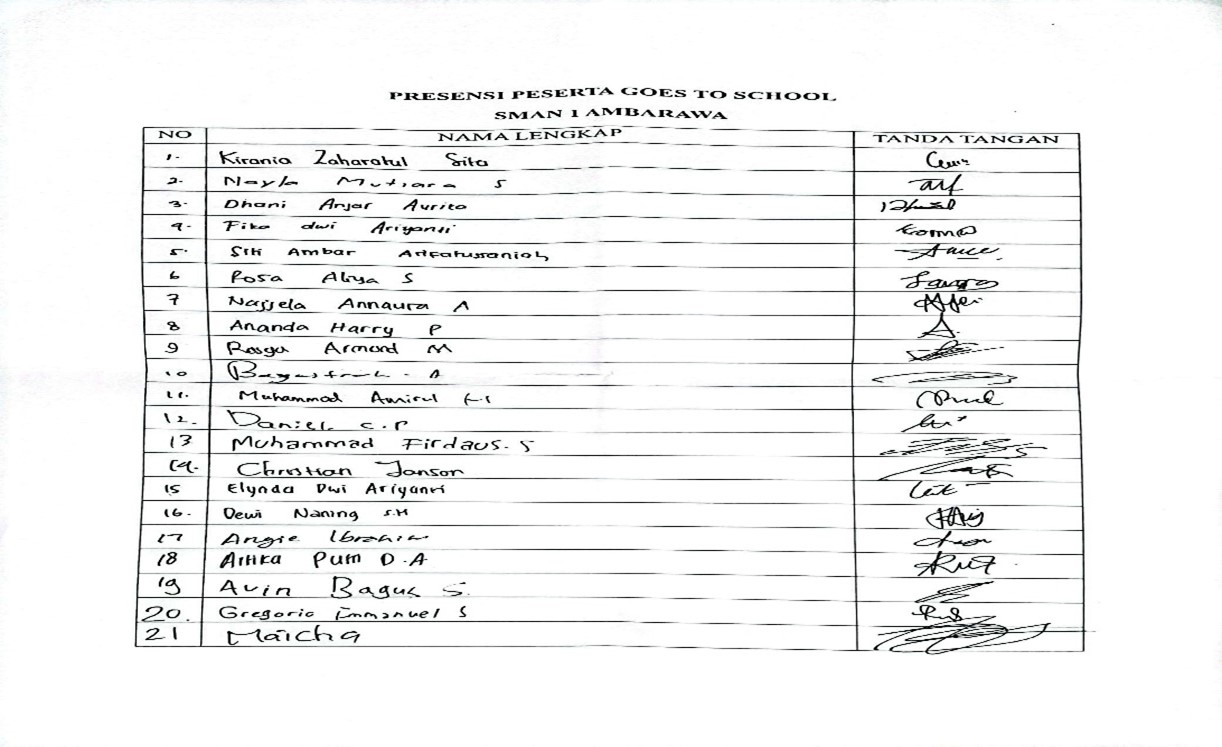 PRESENSI PESERTA GOES TO SCHOOL
SMAN 1 AMBARAWA
NO NAMA LENGKAP TANDA TANGAN
1. Kirania Zaharatul Sita
2. Nayla Mutiara S
3. Dhani Anjar Aurita
4. Fika dwi Ariyanti
5. Siti Ambar
6 Rosa Aliya S
7 Najjela Annaura A
8 Ananda Harry P
9 Rasga Armand M
10 A
11. Muhammad Amirul
12. Daniel C.P
13 Muhammad Firdaus. S
14. Christian Janson
15 Elynda Dwi Ariyanti
16. Dewi Naning S.H
17 Angie Ibrahim
18 Artika Putri D.A
19 Avin Bagus S.
20. Gregorio Emmanuel S
21 Maicha